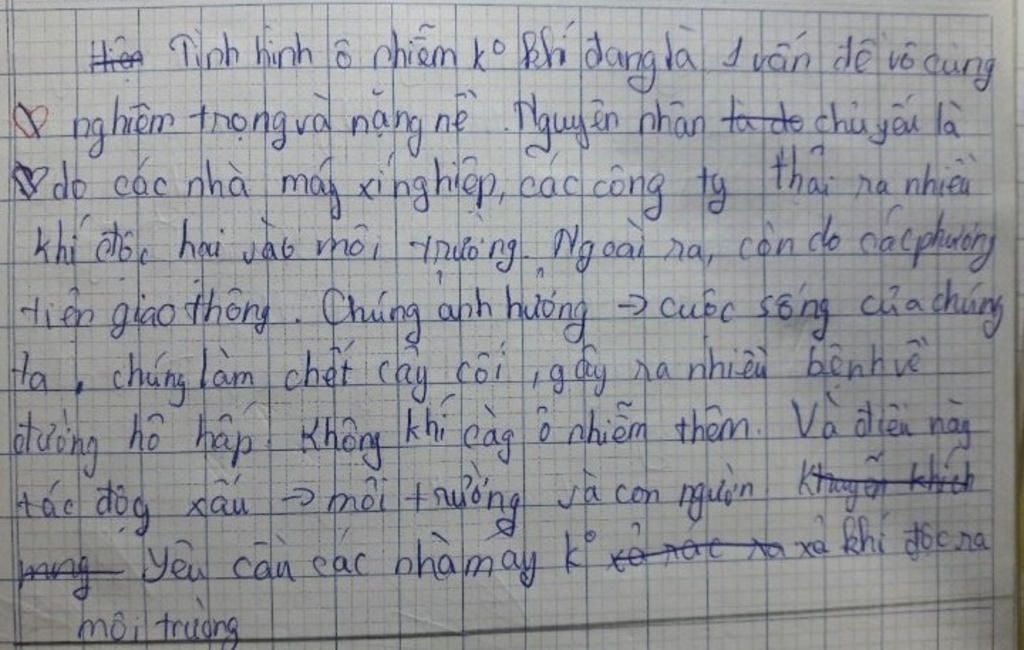 Hiện Tình hình ô nhiễm k° khí đang là 1 vấn đề vô cùng
nghiêm trọng và nặng nề. Nguyên nhân là do chủ yếu là
do các nhà máy xí nghiệp, các công ty thải ra nhiều
khí độc hại vào môi trường. Ngoài ra, còn do các phương
tiện giao thông. Chúng ảnh hưởng → cuộc sống của chúng
ta, chúng làm chết cây cối, gây ra nhiều bệnh về
đường hô hấp. Không khí càg ô nhiễm thêm. Và điều này
tác độg xấu → môi trường và con người
Yêu cầu các nhà máy k° xả rác ra xả khí độc ra
môi trường